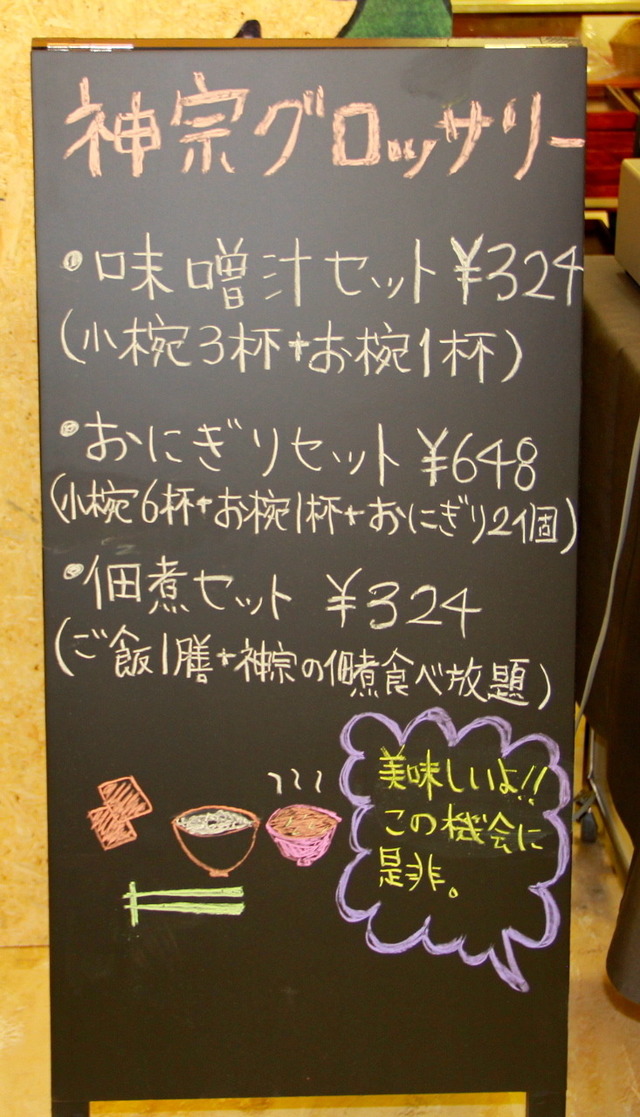 神宗グロッサリー
・味噌汁セット ¥324
(小椀3杯+お椀1杯)
・おにぎりセット ¥648
(小椀6杯+お椀1杯+おにぎり2個)
・佃煮セット ¥324
(ご飯1膳+神宗の佃煮食べ放題)
美味しいよ!!
この機会に
是非。